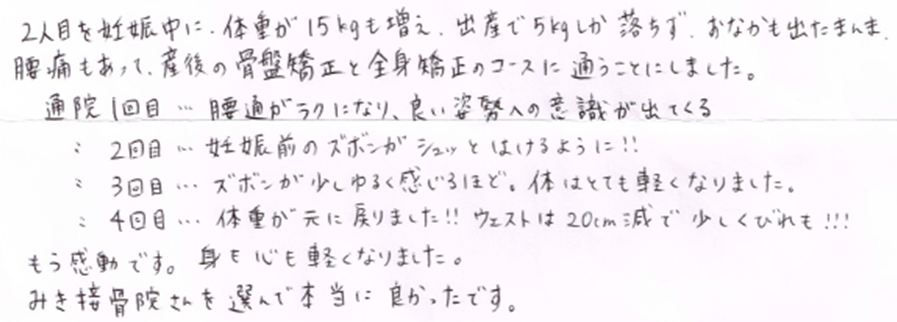 2人目を妊娠中に、体重が15kgも増え、出産で5kgしか落ちず、おなかも出たまんま、
腰痛もあって、産後の骨盤矯正と全身矯正のコースに通うことにしました。
通院1回目…腰通がラクになり、良い姿勢への意識が出てくる
: 2回目…妊娠前のズボンがシュッとはけるように!!
: 3回目…ズボンが少しゆるく感じるほど。体はとても軽くなりました。
: 4回目…体重が元に戻りました!!ウェストは20cm減で少しくびれも!!!
もう感動です。身も心も軽くなりました。
みき接骨院さんを選んで本当に良かったです。